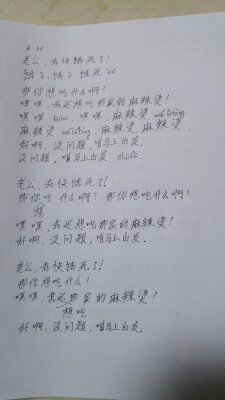 老公，我快饿死了！
那你想吃什么啊？
嘿嘿，我还想吃那家的麻辣烫！
嘿嘿 heihei，麻辣烫 malatang
麻辣烫 malatang，麻辣烫，麻辣烫．
好啊，没问题，咱马上出发．
没问题，咱马上出发．chufa
老公，我快饿死了！
那你吃什么啊？那你想吃什么啊？
想
嘿嘿，我还想吃那家的麻辣烫！
好啊，没问题，咱马上出发．
老公，我快饿死了！
那你想吃什么？
嘿嘿，我还那家的麻辣烫！
想吃
好啊，没问题，咱马上出发．